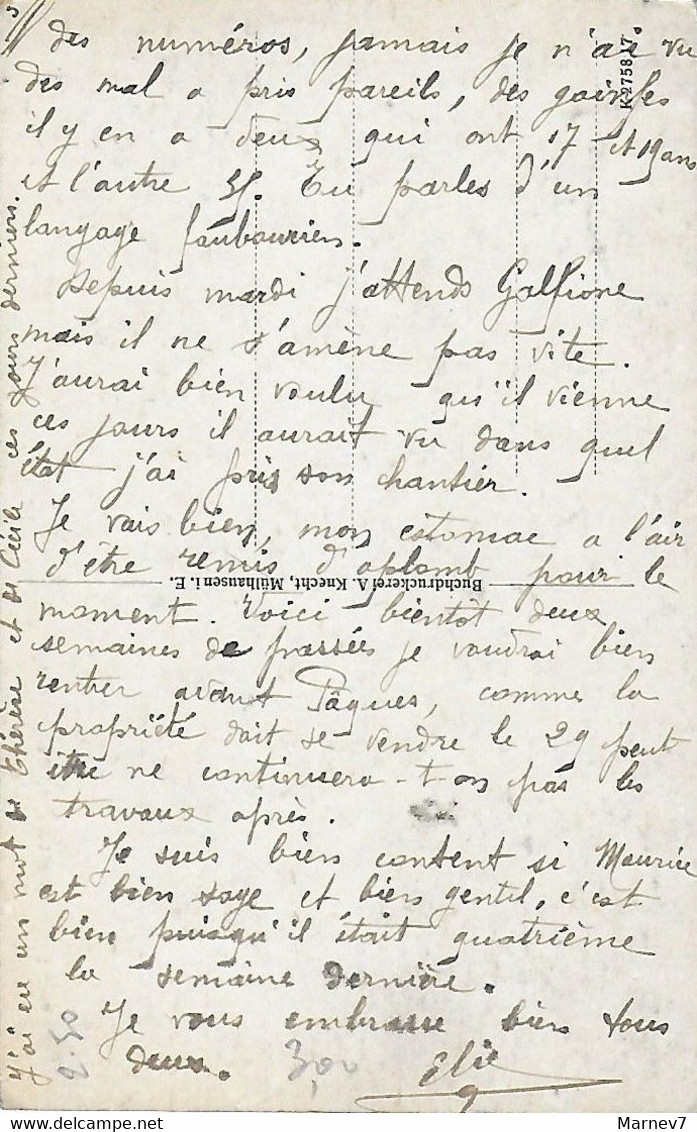 3//
des numéros, jamais je n'ai vu
des mal a pris pareils, des gosses
il y en a deux qui ont 17 et 19 ans
et l'autre 25. Tu parles d'un
langage faubourien.
Depuis mardi j'attends Galfione
mais il ne s'amène pas vite.
J'aurai bien voulu qu'il vienne
ces jours il aurait vu dans quel
état j'ai pris son chantier.
Je vais bien, mon estomac a l'air
d'être remis d'aplomb pour le
moment. Voici bientot deux
semaines de passées je voudrai bien
rentrer avant Pâques, comme la
propriété doit se vendre le 29 peut
être ne continuera-t-on pas les
travaux après.
Je suis bien content si Maurice
est bien sage et bien gentil, c'est
bien puisqu'il était quatrième
la semaine dernière.
Je vous embrasse bien tous
deux. 3,00 Elie
J'ai eu un mot de Thérèse et de Cécile ces jours derniers.
2.50
K 2758 17
Buchdruckerei A. Knecht, Mülhausen i. E.
Marnev7